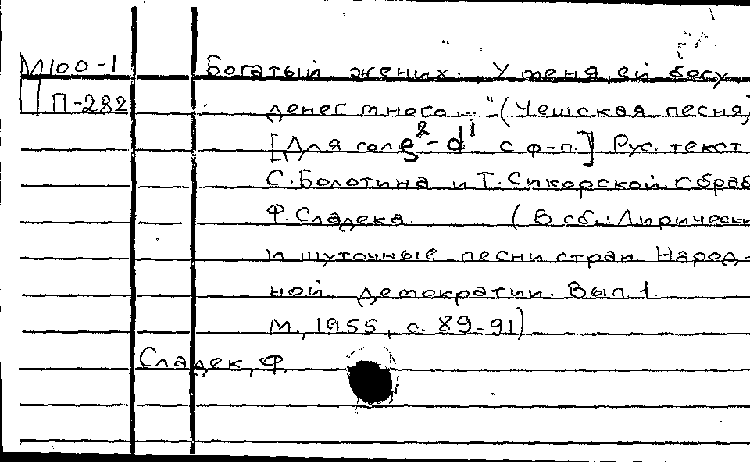 М100-1 Богатый жених. У меня ей бегу
П-282 денег много..." (Чешская песня)
[Для голоса e²-d¹ с ф-п.] Рус. текст
С. Болотина и Т. Сикорской. Обраб
Ф. Сладека. (В сб.: Лирически
и шуточные песни стран Народ-
ной демократии. Вып. 1
М., 1955, с. 89-91)
Сладек, Ф.